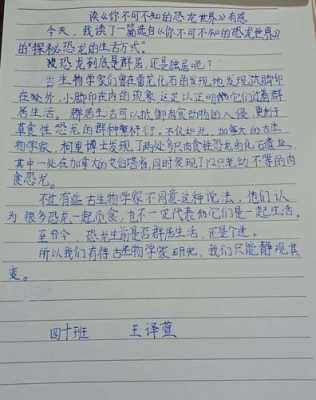 读《你不可不知的恐龙世界》有感
今天，我读了一篇选自《你不可不知的恐龙世界》
的"探秘恐龙的生活方式"。
恐龙到底是群居，还是独居呢？
古生物学家们曾在雷龙化石的发现地发现大脚印
在外，小脚印在内的现象，这足以证明它们过着群
居生活。群居生活可以抵御肉食动物的入侵，更利于
草食性恐龙的群体繁衍。不仅如此，加拿大的古生
物学家，柯里博士发现了两处多只肉食性恐龙的化石遗址，
其中一处在加拿大的艾伯塔省，同时发现了12只年龄不等的肉
食恐龙。
不过有些古生物学家不同意这种说法，他们认
为很多恐龙一起觅食，并不一定代表他们是一起生活。
至今，恐龙生前是否群居生活，还是个迷。
所以我们有待古生物学家研究，我们只能静观其
变。
四十班 王译萱